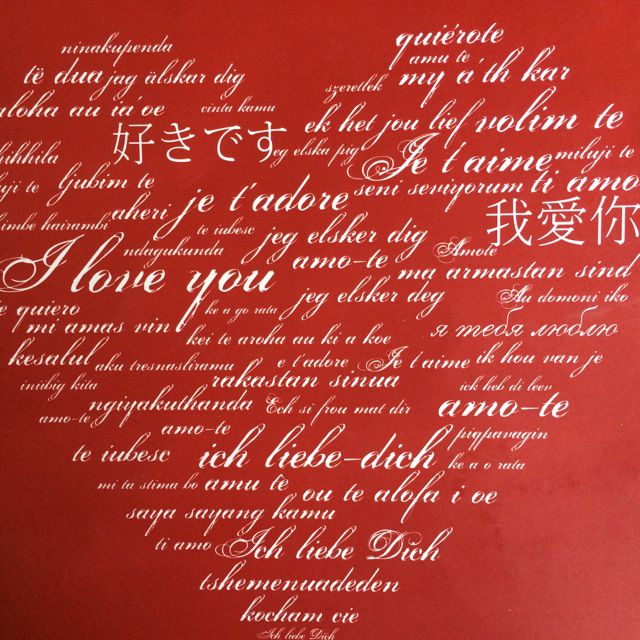 ninakupenda
quiérote
amu te
të dua jag älskar dig
my a'th kar
szeretlek
aloha au ia'oe
cinta kamu
ek het jou lief volim te
好きです
eg elska pig
Je t'aime
miluji te
hihhila
ljubim te
seni seviyorum ti amo
uji te
aheri je t'adore
himbe hairambi
te iubesc
jeg elsker dig
我愛你
ndagukunda
Amote
I love you
amo-te
ma armastan sind
jeg elsker deg
Au domoni iko
quiero
ke a go rata
mi amas vin
kei te aroha au ki a koe
я тебя люблю
kesalul
aku tresnasliramu
e t'adore
Je t'aime
ik hou van je
iniibig kita
rakastan sinua
ick heb di leev
ngiyakuthanda
Ech si frou mat dir
amo-te
amo-te
amo-te
piqpavagin
te iubesc
ich liebe-dich
ke a o rata
mi ta stima bo
amu te
ou te alofa i oe
saya sayang kamu
ti amo
Ich liebe Dich
tshemenuadeden
kocham cie
Ich liebe Dich